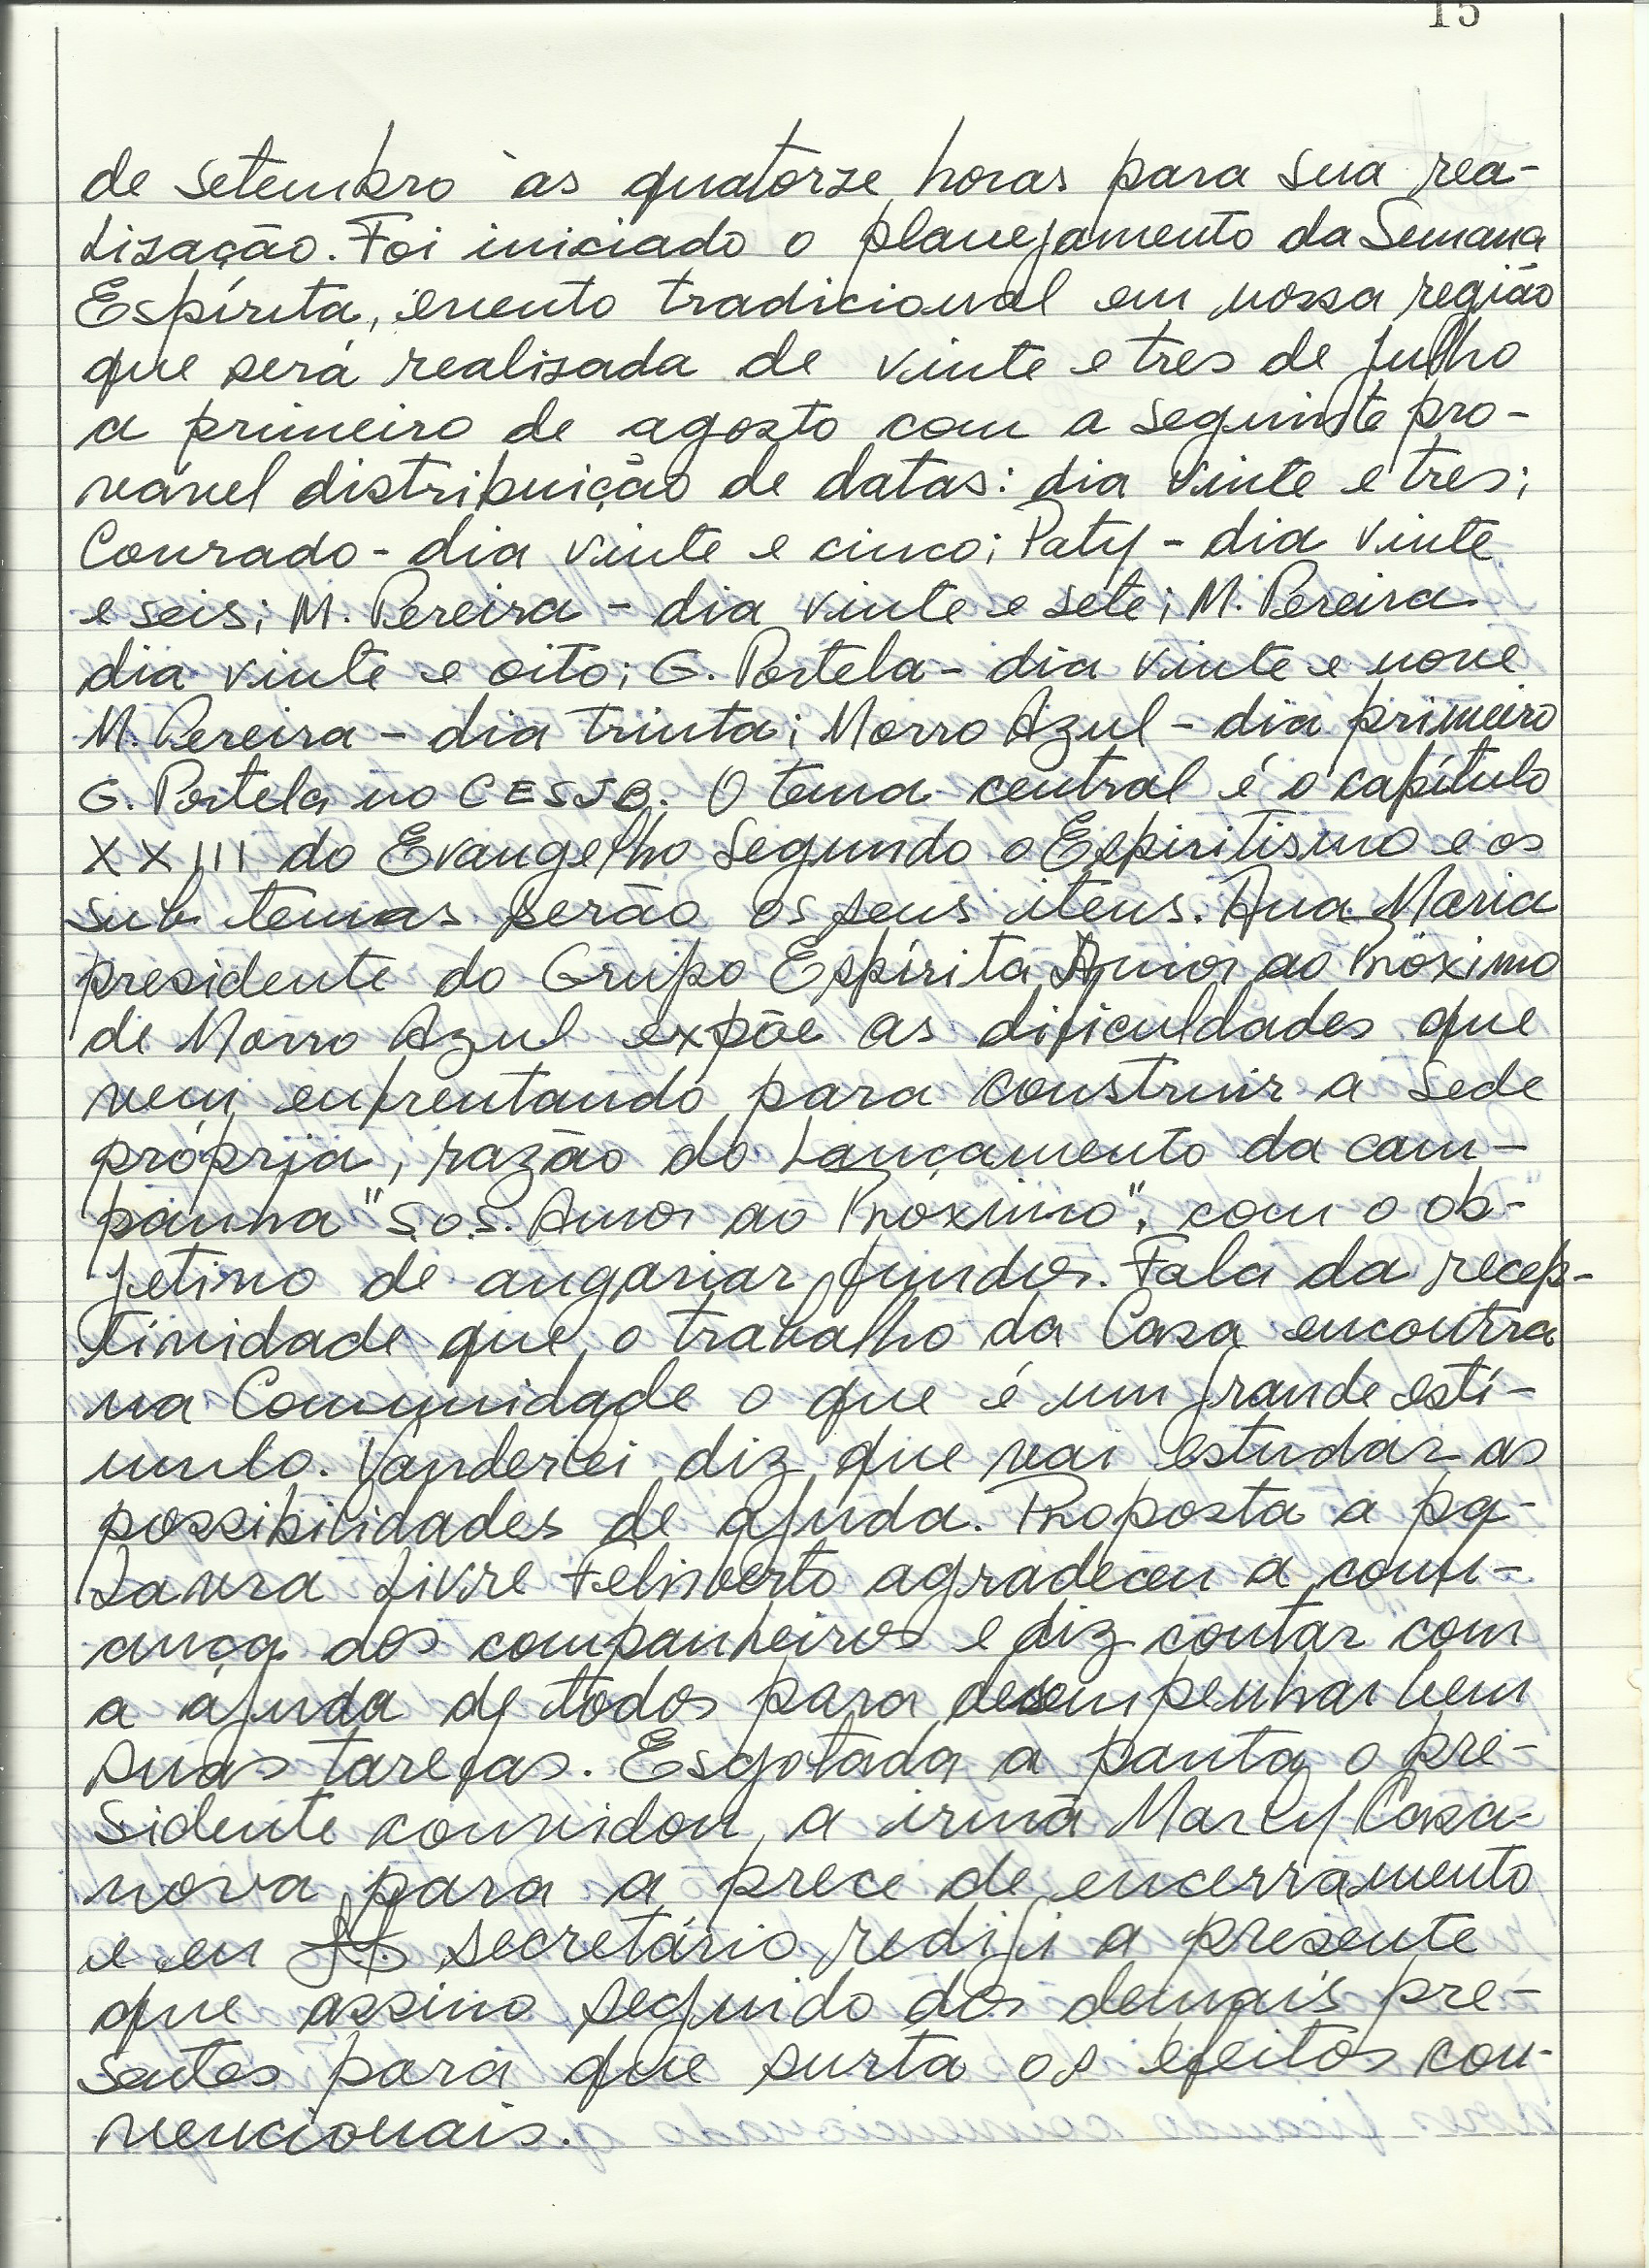 15
de setembro às quatorze horas para sua rea-
lização. Foi iniciado o planejamento da Semana
Espírita, evento tradicional em nossa região
que será realizada de vinte e tres de julho
a primeiro de agosto com a seguinte pro-
vável distribuição de datas: dia vinte e tres;
Conrado - dia vinte e cinco; Paty - dia vinte
e seis; M. Pereira - dia vinte e sete; M. Pereira
dia vinte e oito; G. Portela - dia vinte e nove
M. Pereira - dia trinta; Morro Azul - dia primeiro
G. Portela no CESJB. O tema central é o capítulo
XXIII do Evangelho Segundo o Espiritismo e os
sub temas serão os seus itens. Ana Maria
presidente do Grupo Espírita Amor ao Próximo
de Morro Azul expõe as dificuldades que
vem enfrentando para construir a sede
própria, razão do lançamento da cam-
panha "S.O.S. Amor ao Proximo", com o ob-
jetivo de angariar fundos. Fala da recep-
tividade que o trabalho da Casa encontra
na Comunidade o que é um grande estí-
mulo. Vanderlei diz que vai estudar as
possibilidades de ajuda. Proposta a pa-
lavra livre Felisberto agradeceu a confi-
ança dos companheiros e diz contar com
a ajuda de todos para desempenhar bem
suas tarefas. Esgotada a pauta o pre-
sidente convidou a irmã Marly Casa-
nova para a prece de encerramento
e eu secretário redigi a presente
que assino seguido dos demais pre-
sentes para que surta os efeitos con-
vencionais.